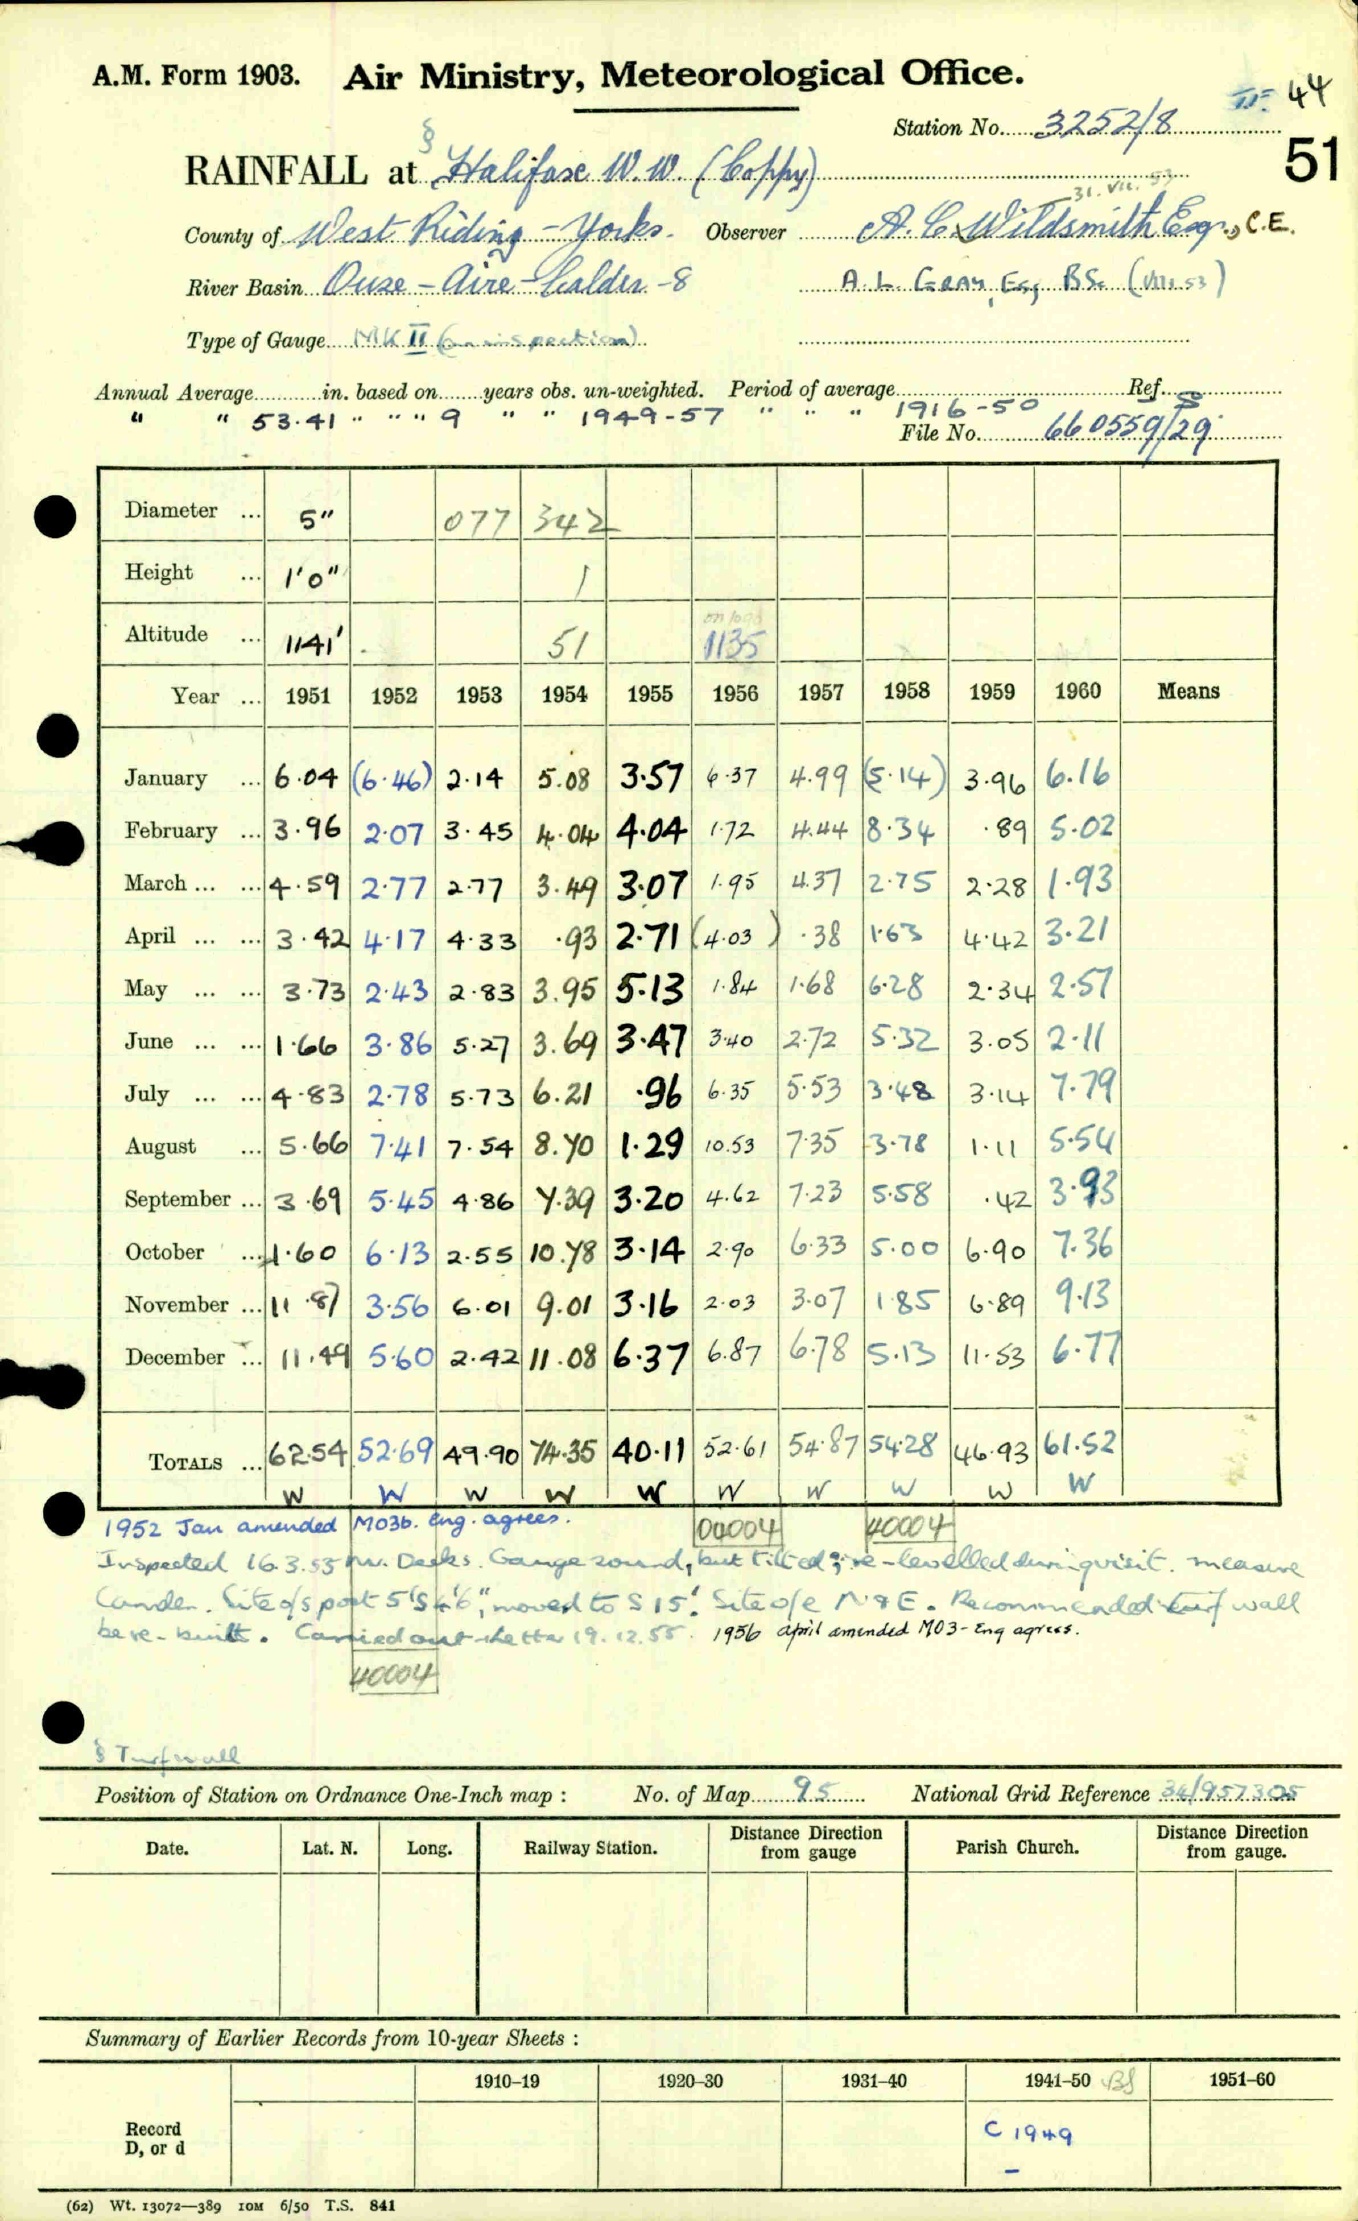 A.M. Form 1903. Air Ministry, Meteorological Office.
44
Station No. 3252/8
51
§
RAINFALL at Halifax W.W. (Coppy)
31.VII.53
County of West Riding - Yorks. Observer A. C. Wildsmith Esqr., C.E.
River Basin Ouse - Aire - Calder - 8 A. L. Gray, Esq BSc (VIII 53)
Type of Gauge MK II (on inspection)
Annual Average in. based on years obs. un-weighted. Period of average Ref. S
" " 53.41 " " " 9 " " 1949-57 " " " 1916-50
File No. 660559/29
Diameter ... 5" 077 342
Height ... 1'0" 1
Altitude ... 1141' 51 1135
Year ... 1951 1952 1953 1954 1955 1956 1957 1958 1959 1960 Means
January ... 6.04 (6.46) 2.14 5.08 3.57 6.37 4.99 (5.14) 3.96 6.16
February ... 3.96 2.07 3.45 4.04 4.04 1.72 4.44 8.34 .89 5.02
March ... ... 4.59 2.77 2.77 3.49 3.07 1.95 4.37 2.75 2.28 1.93
April ... ... 3.42 4.17 4.33 .93 2.71 (4.03) .38 1.63 4.42 3.21
May ... ... 3.73 2.43 2.83 3.95 5.13 1.84 1.68 6.28 2.34 2.57
June ... ... 1.66 3.86 5.27 3.69 3.47 3.40 2.72 5.32 3.05 2.11
July ... ... 4.83 2.78 5.73 6.21 .96 6.35 5.53 3.48 3.14 7.79
August ... 5.66 7.41 7.54 8.70 1.29 10.53 7.35 3.78 1.11 5.54
September ... 3.69 5.45 4.86 7.39 3.20 4.62 7.23 5.58 .42 3.93
October ... 1.60 6.13 2.55 10.78 3.14 2.90 6.33 5.00 6.90 7.36
November ... 11.87 3.56 6.01 9.01 3.16 2.03 3.07 1.85 6.89 9.13
December ... 11.49 5.60 2.42 11.08 6.37 6.87 6.78 5.13 11.53 6.77
TOTALS ... 62.54 52.69 49.90 74.35 40.11 52.61 54.87 54.28 46.93 61.52
W W W W W W W W W W
1952 Jan amended M03b. Eng. agrees. 00004 40004
Inspected 16.3.55 Mr. Deeks. Gauge sound, but tilted; re-levelled during visit. measure
Camden. Site o/s post 5'S 4'6", moved to S 15'. Site o/e N & E. Recommended turf wall
be re-built. Carried out letter 19.12.55. 1956 april amended M03-Eng agrees.
40004
§ Turfwall
Position of Station on Ordnance One-Inch map : No. of Map 95 National Grid Reference 34/957305
Date. Lat. N. Long. Railway Station. Distance Direction from gauge Parish Church. Distance Direction from gauge.
Summary of Earlier Records from 10-year Sheets :
1910–19 1920–30 1931–40 1941–50 1951–60
Record
D, or d
C 1949
–
(62) Wt. 13072—389 10M 6/50 T.S. 841